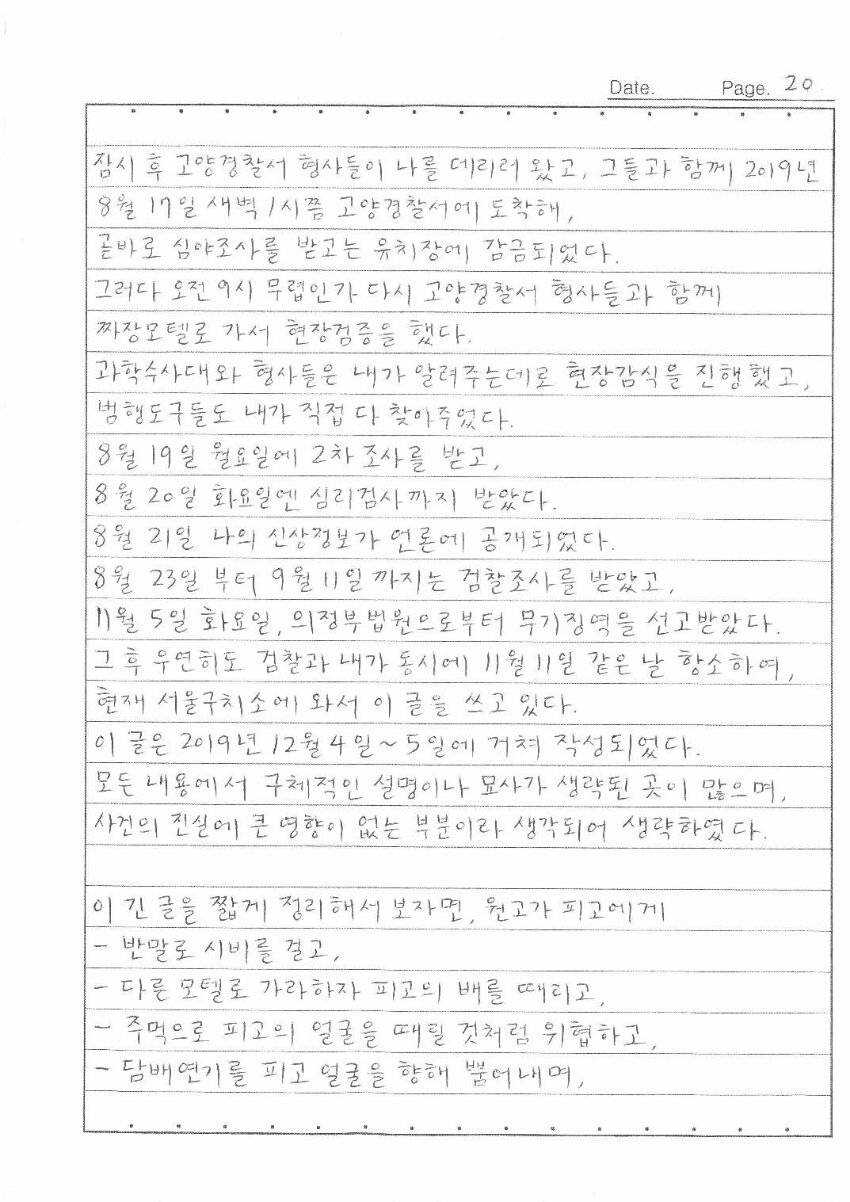 Date. Page. 20
잠시 후 고양경찰서 형사들이 나를 데리러 왔고, 그들과 함께 2019년
8월 17일 새벽 1시쯤 고양경찰서에 도착해,
곧바로 심야조사를 받고는 유치장에 감금되었다.
그러다 오전 9시 무렵인가 다시 고양경찰서 형사들과 함께
짜장모텔로 가서 현장검증을 했다.
과학수사대와 형사들은 내가 알려주는데로 현장감식을 진행했고,
범행도구들도 내가 직접 다 찾아주었다.
8월 19일 월요일에 2차 조사를 받고,
8월 20일 화요일엔 심리검사까지 받았다.
8월 21일 나의 신상정보가 언론에 공개되었다.
8월 23일 부터 9월 11일 까지는 검찰조사를 받았고,
11월 5일 화요일, 의정부법원으로부터 무기징역을 선고받았다.
그 후 우연히도 검찰과 내가 동시에 11월 11일 같은 날 항소하여,
현재 서울구치소에 와서 이 글을 쓰고 있다.
이 글은 2019년 12월 4일~5일에 거쳐 작성되었다.
모든 내용에서 구체적인 설명이나 묘사가 생략된 곳이 많으며,
사건의 진실에 큰 영향이 없는 부분이라 생각되어 생략하였다.
이 긴 글을 짧게 정리해서 보자면, 원고가 피고에게
- 반말로 시비를 걸고,
- 다른 모텔로 가라하자 피고의 배를 때리고,
- 주먹으로 피고의 얼굴을 때릴 것처럼 위협하고,
- 담배연기를 피고 얼굴을 향해 뿜어내며,